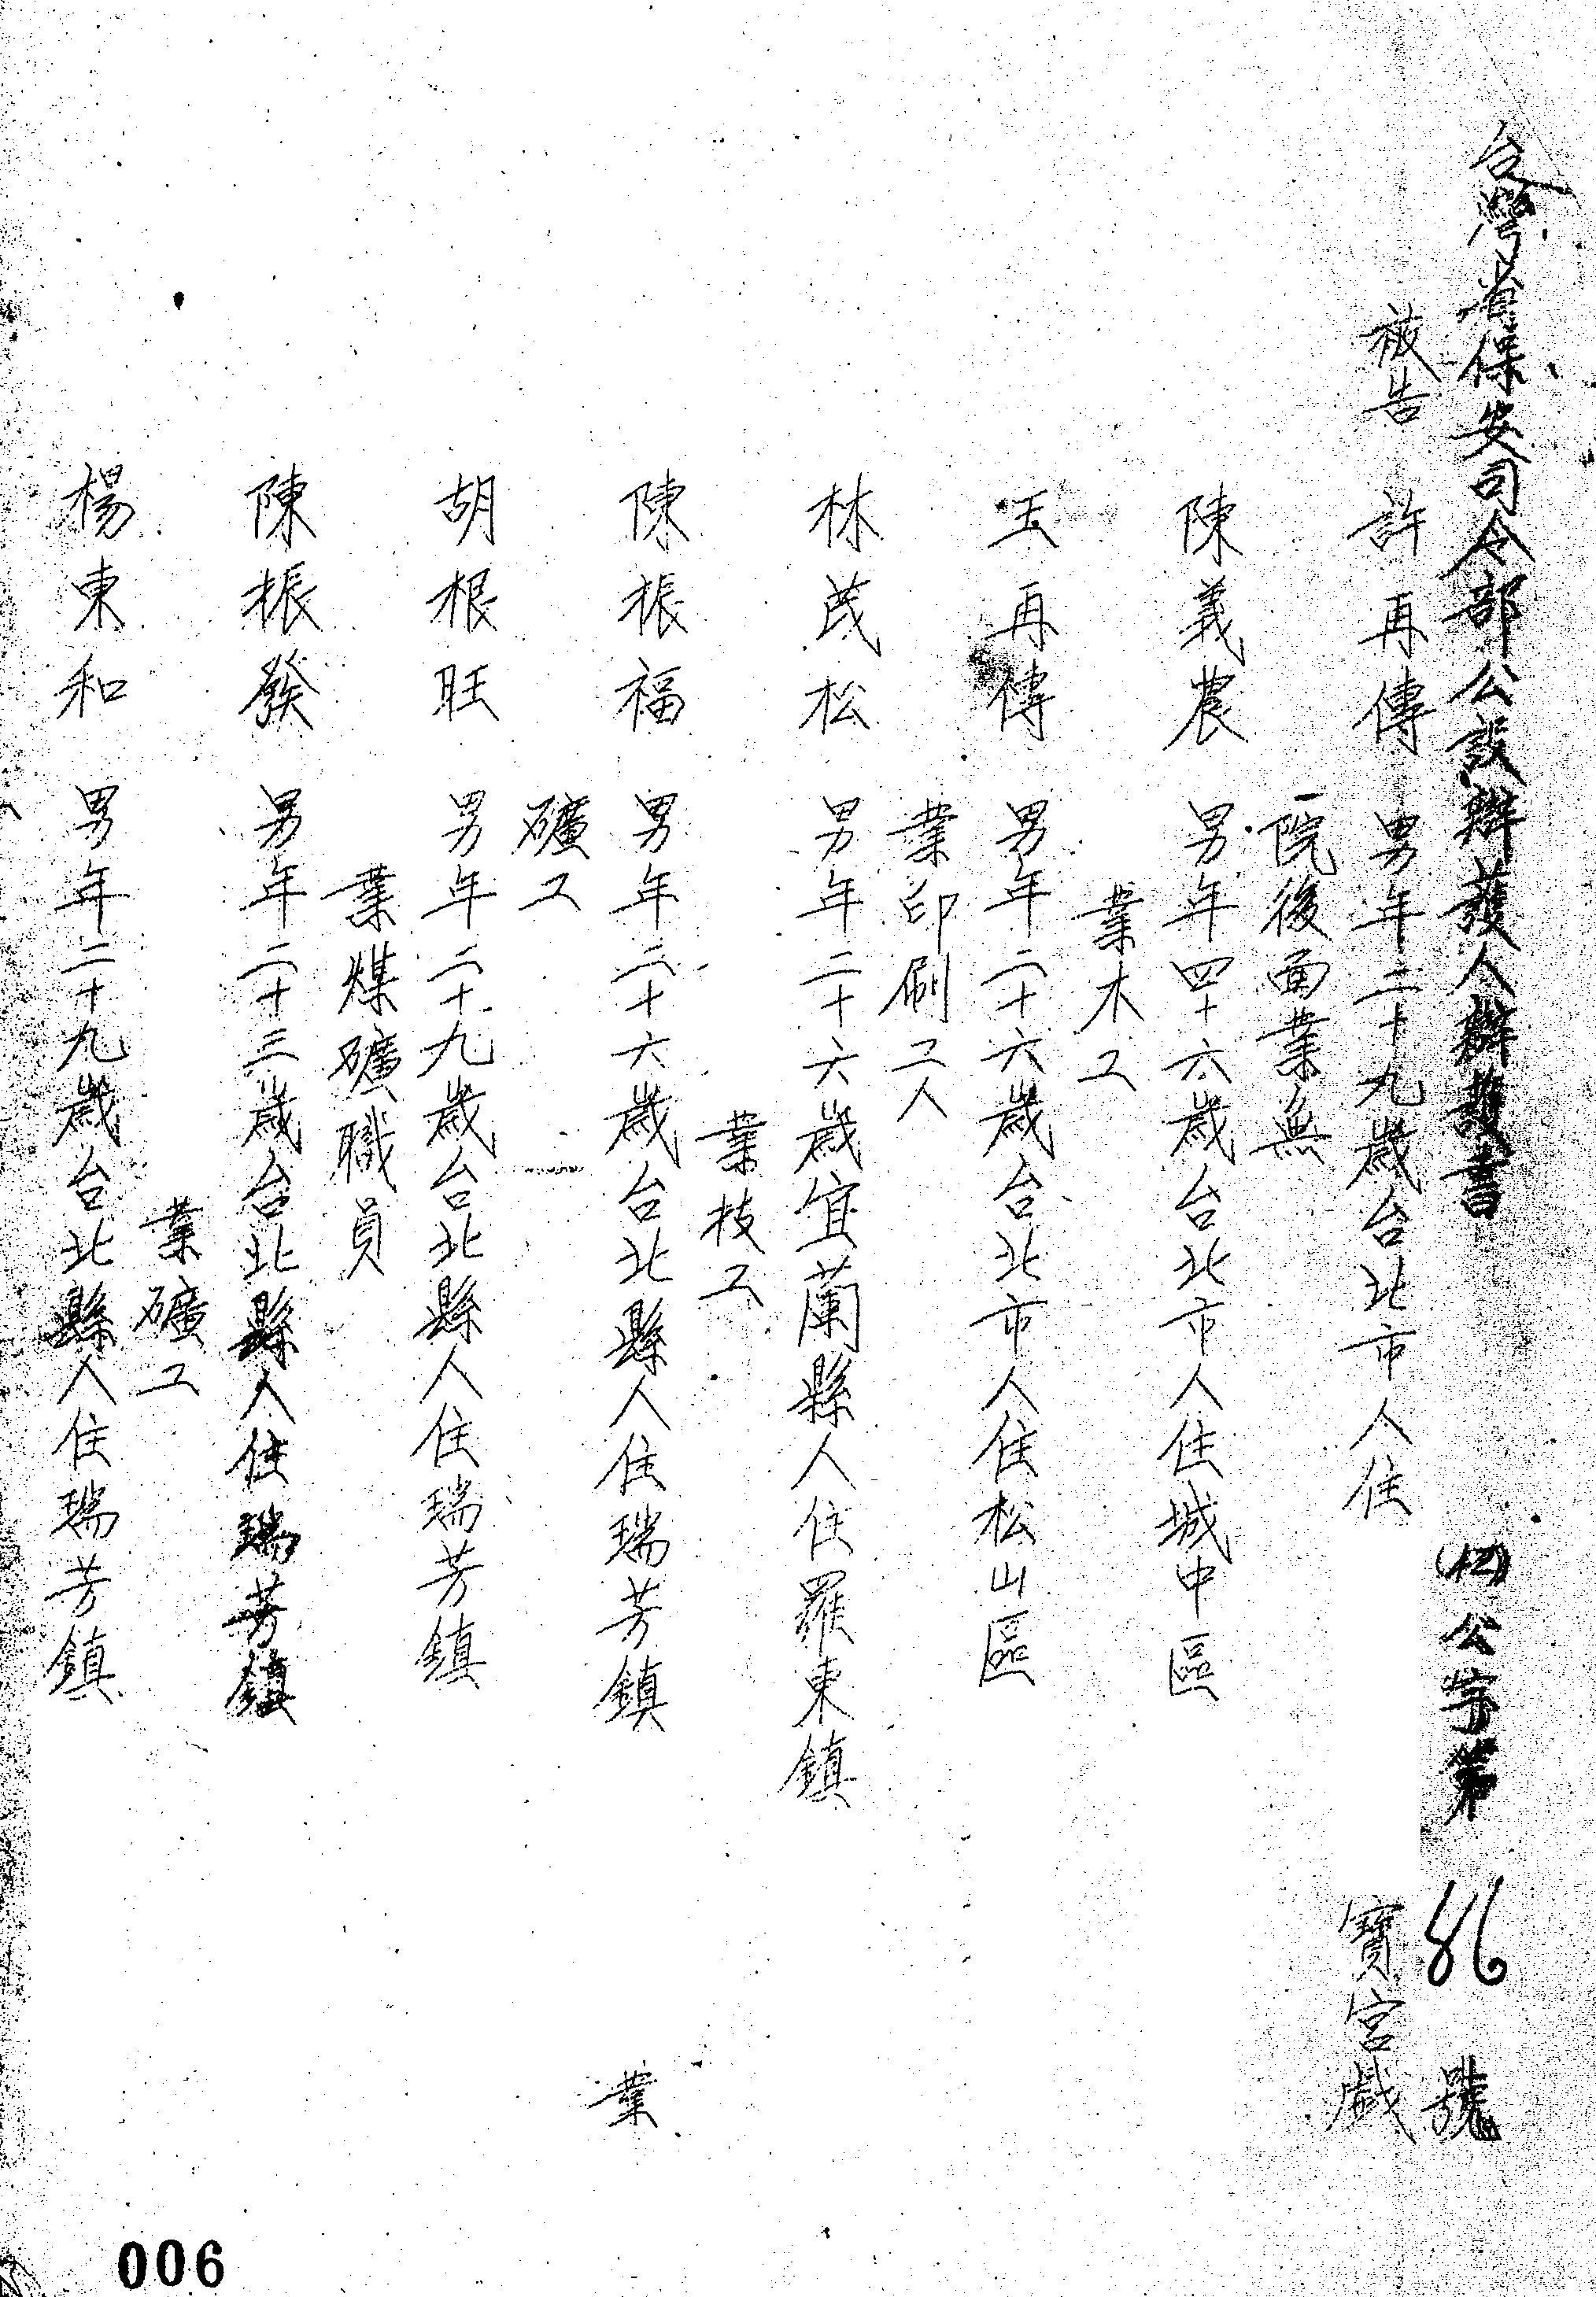 台灣省保安司令部公設辯護人辯護書 公字第86號
被告 許再傳 男年二十九歲台北市人住 寶宮戲
院後面業無
陳義農 男年四十六歲台北市人住城中區
業木工
王再傳 男年二十六歲台北市人住松山區
業印刷工人
林茂松 男年二十六歲宜蘭縣人住羅東鎮
業技工
陳振福 男年二十六歲台北縣人住瑞芳鎮 業
礦工
胡根旺 男年二十九歲台北縣人住瑞芳鎮
業煤礦職員
陳振發 男年二十三歲台北縣人住瑞芳鎮
業礦工
楊東和 男年二十九歲台北縣人住瑞芳鎮
006